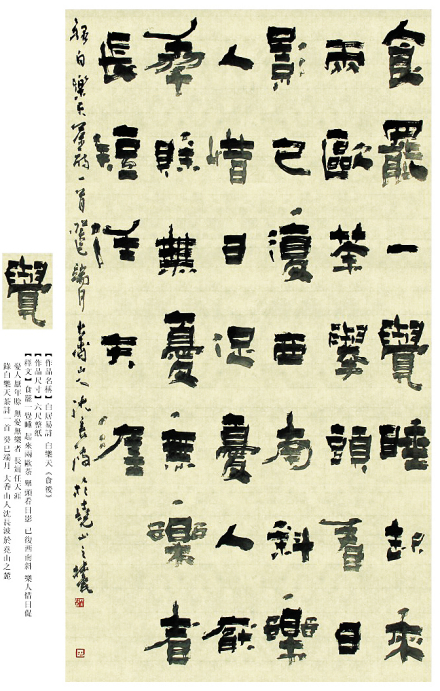 食罷一覺睡起來
兩甌茶舉頭看日
影已復西南斜樂
人惜日促憂人厭
年賒無憂無樂者
長短任天厓
錄白樂天茶詩一首 癸巳端月 大香山人沈長波於堯山之麓
覺
【作品名稱】白居易詩 白樂天《食後》
【作品尺寸】六尺整紙
【釋文】食罷一覺睡 起來兩甌茶 舉頭看日影 已復西南斜 樂人惜日促
憂人厭年賒 無憂無樂者 長短任天涯
錄白樂天茶詩一首 癸巳端月 大香山人沈長波於堯山之麓